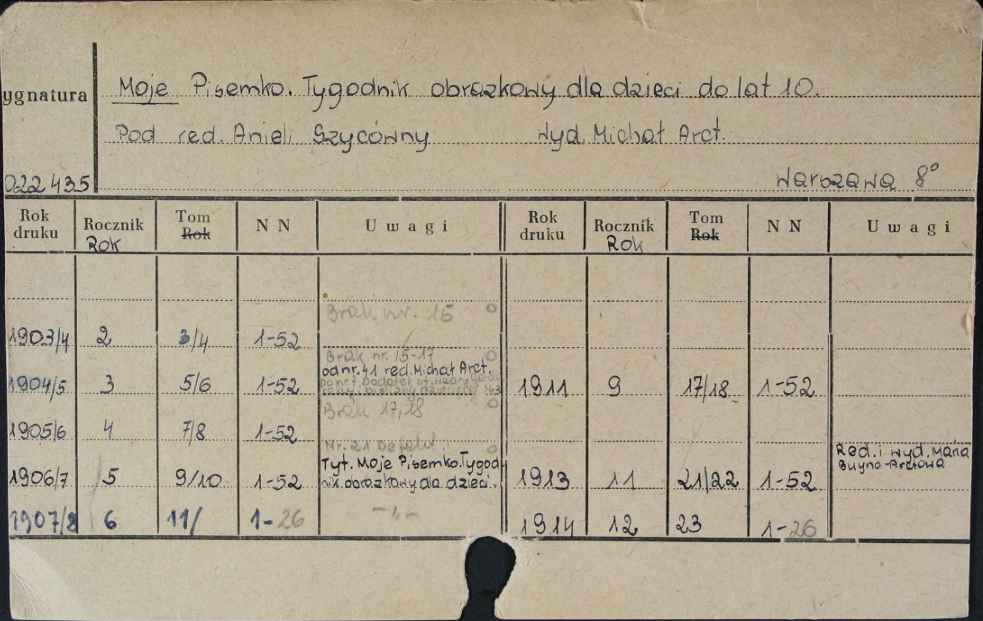 Moje Pisemko. Tygodnik obrazkowy dla dzieci do lat 10.
ygnatura
Pod red. Anieli Szycówny Wyd. Michał Arct.
022435 Warszawa 8°
Rok druku Rocznik Rok Tom Rok N N Uwagi Rok druku Rocznik Rok Tom Rok N N Uwagi
Brak nr. 16
1903/4 2 3/4 1-52
Brak nr. 15-17
od nr. 41 red. Michał Arct.
1904/5 3 5/6 1-52 1911 9 17/18 1-52
Brak 17, 18
1905/6 4 7/8 1-52
Nr. 21
Tyt. Moje Pisemko. Tygod
nik obrazkowy dla dzieci.
1906/7 5 9/10 1-52 1913 11 21/22 1-52 Red. i wyd. Maria
Buyno-Arctowa
1907/8 6 11/ 1-26 -"- 1914 12 23 1-26